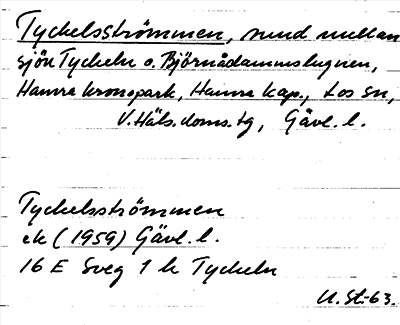 Tyckelsströmmen, sund mellan
sjön Tyckeln o. Björnådammslugnen,
Hamra kronopark, Hamra kap., Los sn,
V. Häls. doms. tg, Gävl. l.
Tyckelsströmmen
ek (1959) Gävl. l.
16 E Sveg 1 h Tyckeln
U. St-63.